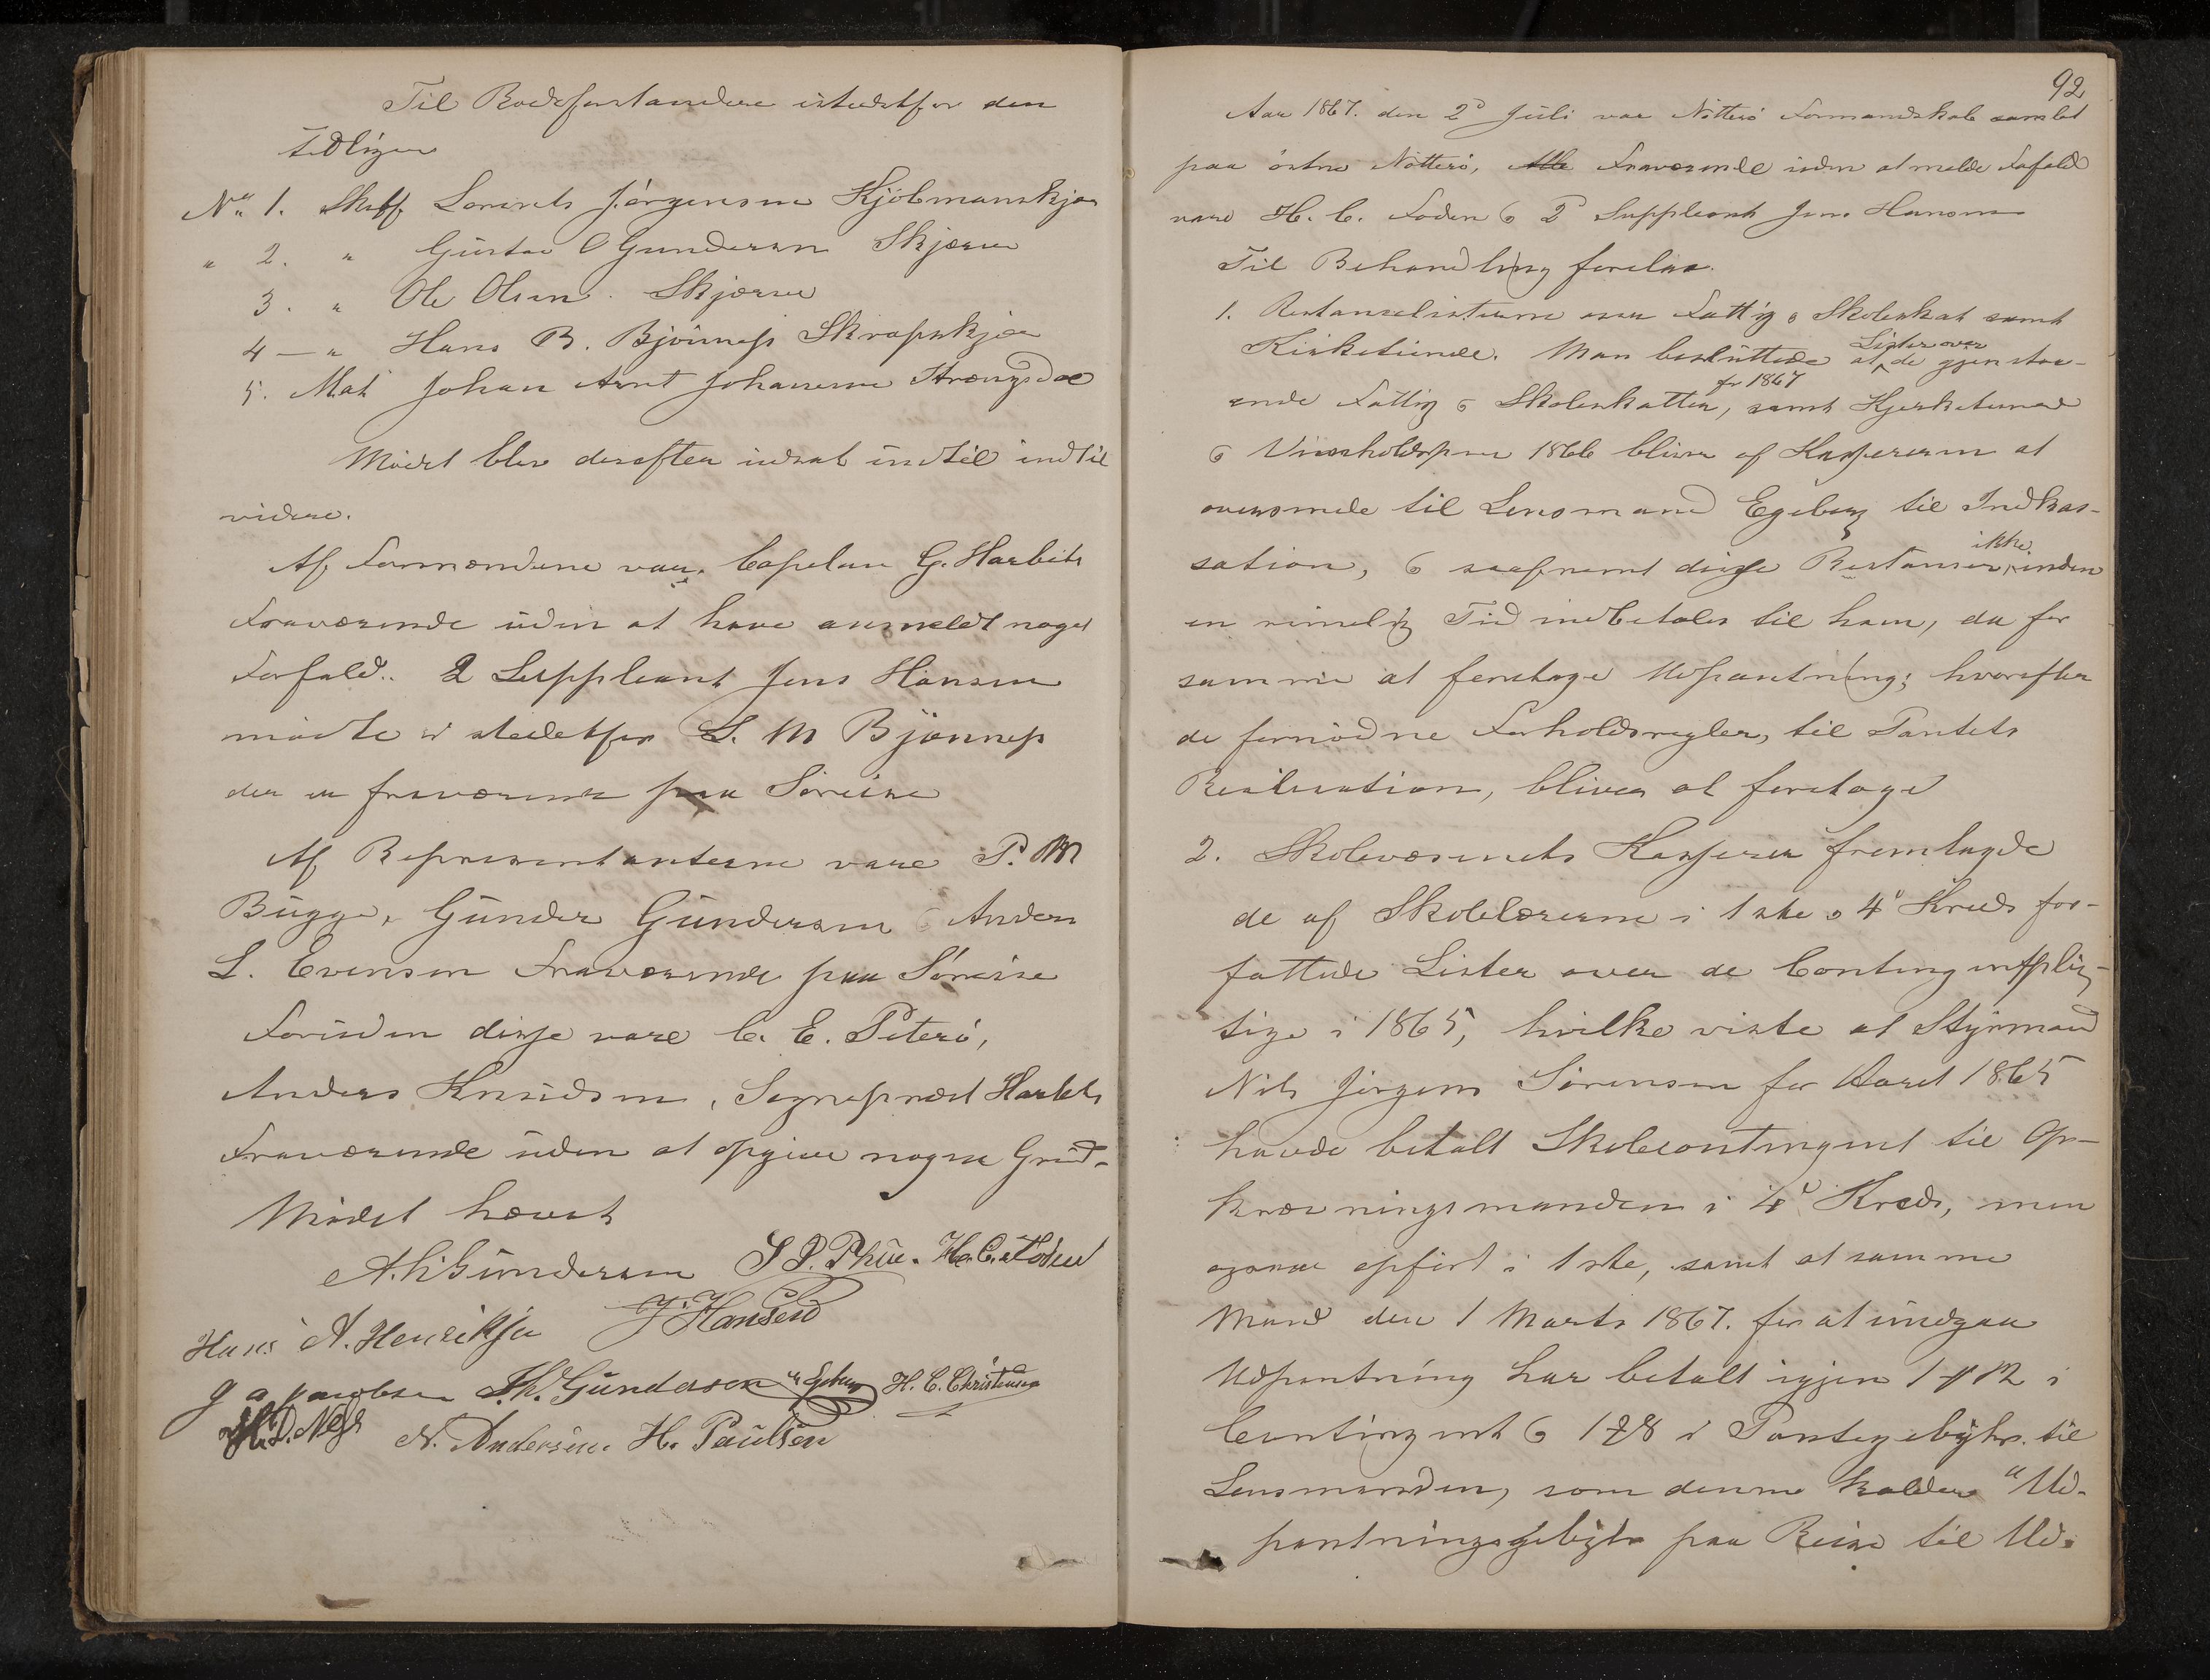 Til Rodeforstandere istedetfor den
tidligere
No. 1. Skibsf. Lorents Jörgensen Kjöbmanskjær
" 2. " Gustav O Gundersen Skjærve
3. " Ole Olsen. Skjærve
4 — " Hans B. Bjönnes Skrapskjær
5. Mat Johan Arnt Johannesen Strængsdal
Mödet blev derefter udsat indtil indtil
videre.
Af Formændene var Capelan G. Harbitz
Fraværende uden at have anmeldt noget
Forfald. 2 Suppleant Jens Hansen
mödte i stedetfor S. M Bjönnes
der er fraværende paa Söreise
Af Repræsentanterne vare P. M
Bugge, Gunder Gundersen & Anders
L. Evensen Fraværende paa Söreise
Foruden disse vare C. E. Peterö,
Anders Knudsen, Sognepræst Harbitz
Fraværende uden at opgive nogen Grund.
Mödet hævet
A. H. Gundersen S P. Thue. H. C. Foden
Hans A. Henriksen J. Hansen
J A Jacobsen Th. Gundersen Egeberg H. C. Christensen
H. D. Ness N. Andersen. H. Paulsen
92
Aar 1867. den 2d Juli var Nötterö Formandskab samlet
paa östre Nötterö, Alle Fraværende uden at melde Forfald
vare H. C. Foden & 2d Suppleant Jens Hansen
Til Behandling forelaa.
1. Restanselisterne over Fattig & Skoleskat samt
Kirketiende. Man besluttede at Lister over de gjenstaa-
ende Fattig & Skoleskatter for 1867, samt Kjerketiende
& Vinholdspen 1866 bliver af Kassereren at
oversende til Lensmand Egeberg til Indkas-
sation, & saafremt disse Restanser ikke inden
en rimelig Tid indbetales til ham, da for
samme at foretage Udpantning; hvorefter
de fornödne Forholdsregler, til Pantets
Realisation, bliver at foretage
2. Skolevæsenets Kasserer fremlagde
de af Skolelærerne i 1ste & 4d Kreds for-
fattede Lister over de Contingentplig-
tige i 1865, hvilke viste at Styrmand
Nils Jörgen Sörensen for Aaret 1865
havde betalt Skolecontingent til Op-
krævningsmanden i 4d Kreds, men
ogsaa opfört i 1ste, samt at samme
Mand den 1 Marts 1867. for at undgaa
Udpantning har betalt igjen 1 # 12 i
Contingent & 1 # 8 i Pantegebyhr. til
Lensmanden, som denne kalder "Ud-
pantningsgebyhr paa Reise til Ud-